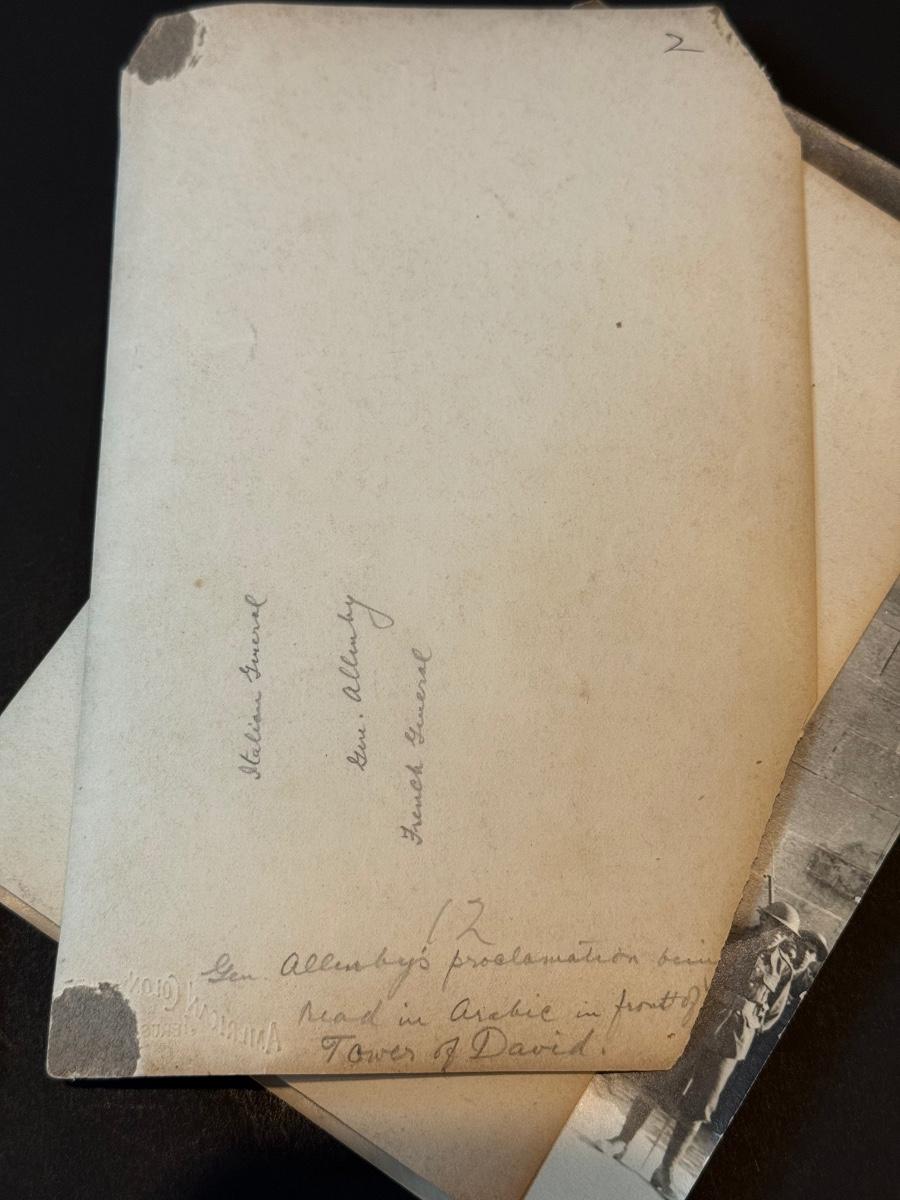 2
Italian General
Gen. Allenby
French General
12
Gen Allenby's proclamation bein
Read in Arabic in front of
Tower of David.
AMERICAN COLON
JERUS